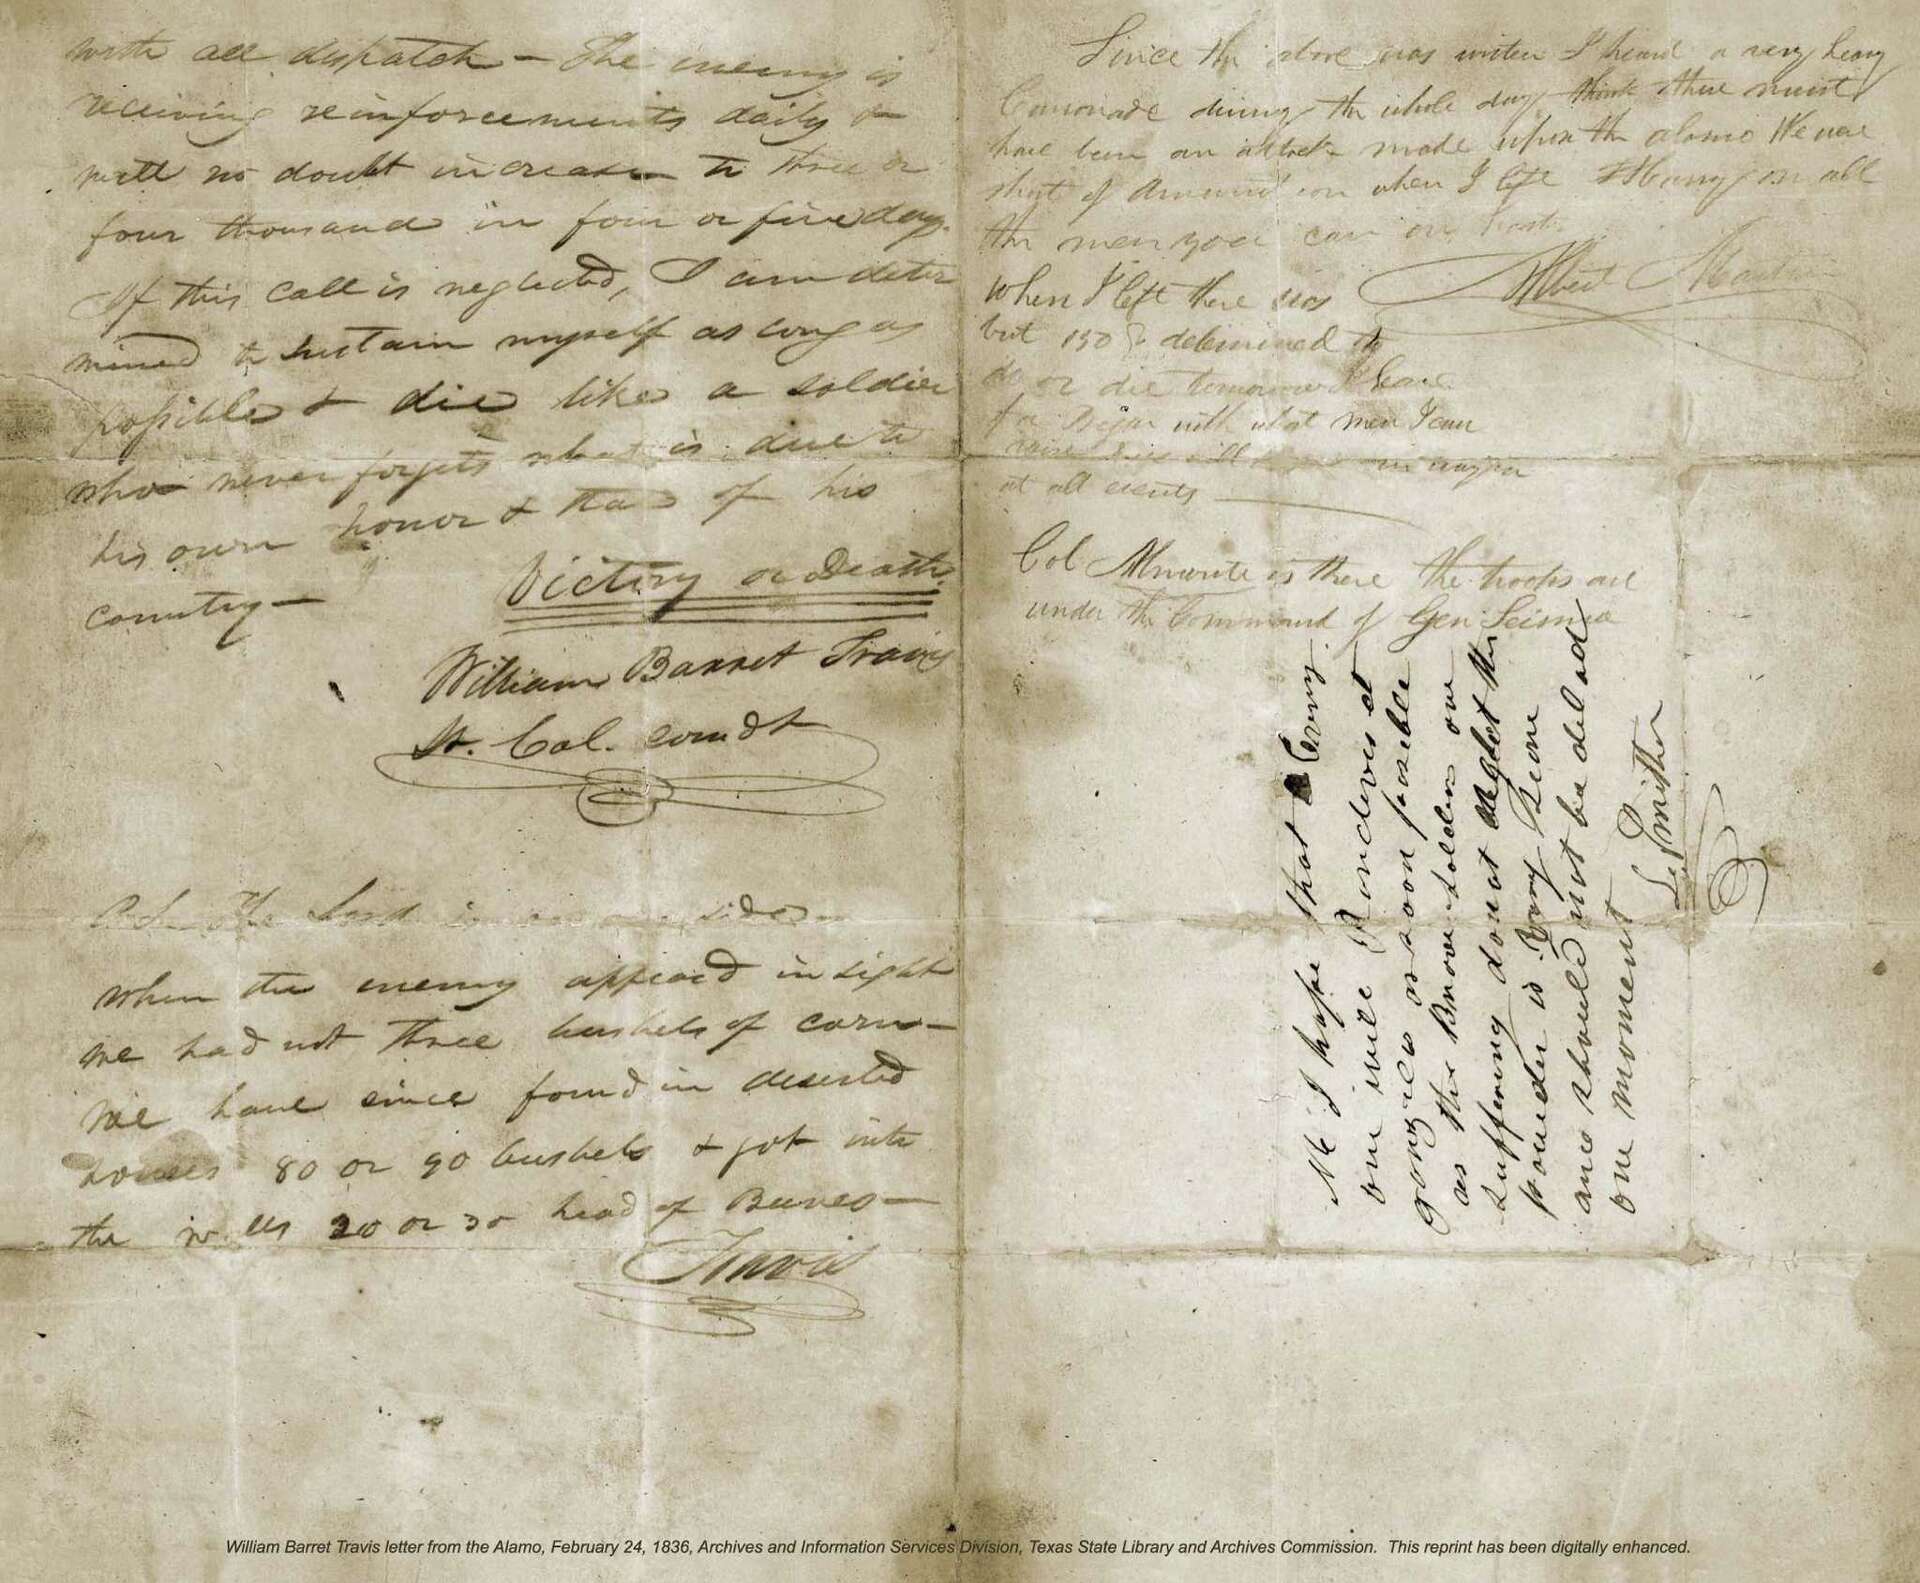 with all dispatch — The enemy is
receiving reinforcements daily &
will no doubt increase to three or
four thousand in four or five days.
If this call is neglected, I am deter
mined to sustain myself as long as
possible & die like a soldier
who never forgets what is due to
his own honor & that of his
country —
Victory or Death
William Barret Travis
Lt. Col. comdt
P.S. The Lord is on our side—
When the enemy appeard in sight
we had not three bushels of corn—
We have since found in deserted
houses 80 or 90 bushels & got into
the walls 20 or 30 head of Beeves—
Travis
Since the above was writen I heard a very heavy
Canonade during the whole day think there must
have been an attack made upon the alamo We were
short of Amunition when I left Hurry on all
the men you can on
Albert Martin
When I left there was
but 150 determined to
do or die tomorrow I leave
for Bejar with what men I can
at all events
Col Almonte is there the troops are
under the Command of Gen Seisma
I hope that Every
one will Randeves at
gonzales as soon posible
as the Brave soldiers are
suffering do not neglect the
powder is very scarce
and should not be delad
one moment
L. Smither
William Barret Travis letter from the Alamo, February 24, 1836, Archives and Information Services Division, Texas State Library and Archives Commission. This reprint has been digitally enhanced.